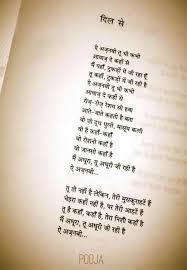 दिल से
ऐ अजनबी तू भी कभी
आवाज़ दे कहीं से
मैं यहाँ, टुकड़ों में जी रहा हूँ
तू कहाँ, टुकड़ों में जी रही है
ऐ अजनबी तू भी कभी
आवाज़ दे कहीं से
रोज़-रोज़ रेशम सी हवा
आते-जाते कहती है बता
वो जो दूध धुली, मासूम कली
वो है कहाँ-कहाँ
वो रोशनी कहाँ है
वो जानसी कहाँ है
मैं अधूरा, तू अधूरी जी रही है
ऐ अजनबी...
तू तो नहीं है लेकिन, तेरी मुस्कुराहटें हैं
चेहरा कहीं नहीं है, पर तेरी आहटें हैं
तू है कहाँ, कहाँ है, तेरा निशाँ कहाँ है
मैं अधूरा, तू अधूरी जी रही है
ऐ अजनबी...
POOJA